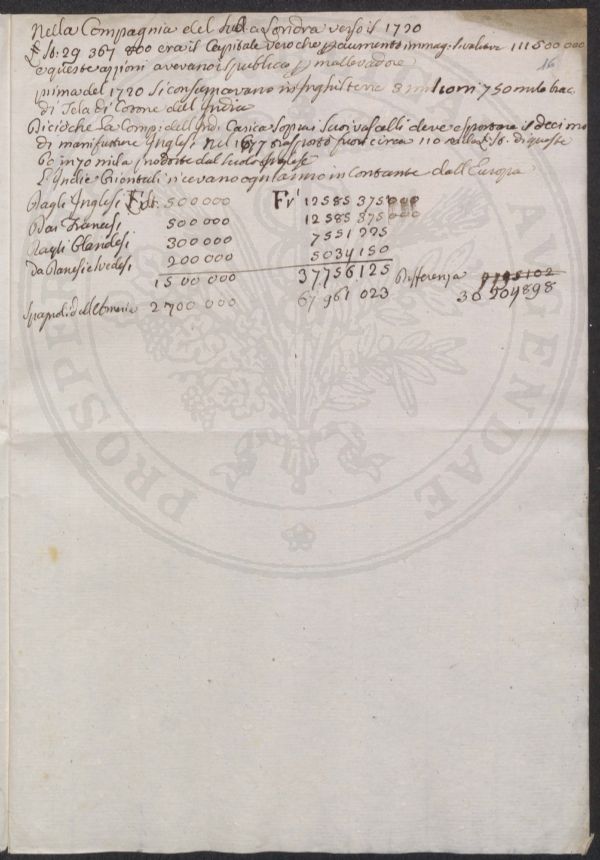 Nella Compagnia del Sud a Londra verso il 1720
L. St. 29 367 800 era il Capitale vero che p aumento immag. si valutava 111500 000
e queste azioni avevano il publico p mallevadore
16
prima del 1720 si consumavano in Inghilterra 3 milioni 750 mila brac.
di Tela di Cotone dell India
Dicioche la Comp. dell Ind. Carica sopra i suoi vascelli deve esportare il decimo
di manifatture Inglesi nel 1677 trasportò fuori circa 110 mila L. St. di queste
60 in 70 mila prodotte dal suolo Inglese
L'Indie Orientali ricevano ogni anno in Contante dall Europa
Dagli Inglesi L. St. 500 000 Fr. 12585 375 000
Dai Francesi 500 000 12 585 375 000
Dagli Olandesi 300 000 7551 225
Da Danesi e Svedesi 200 000 5034 150
15 00 000 37 756 125 Differenza 9795102
2 700 000 67 961 023 30 204 898
PROSPER AUGENDAE